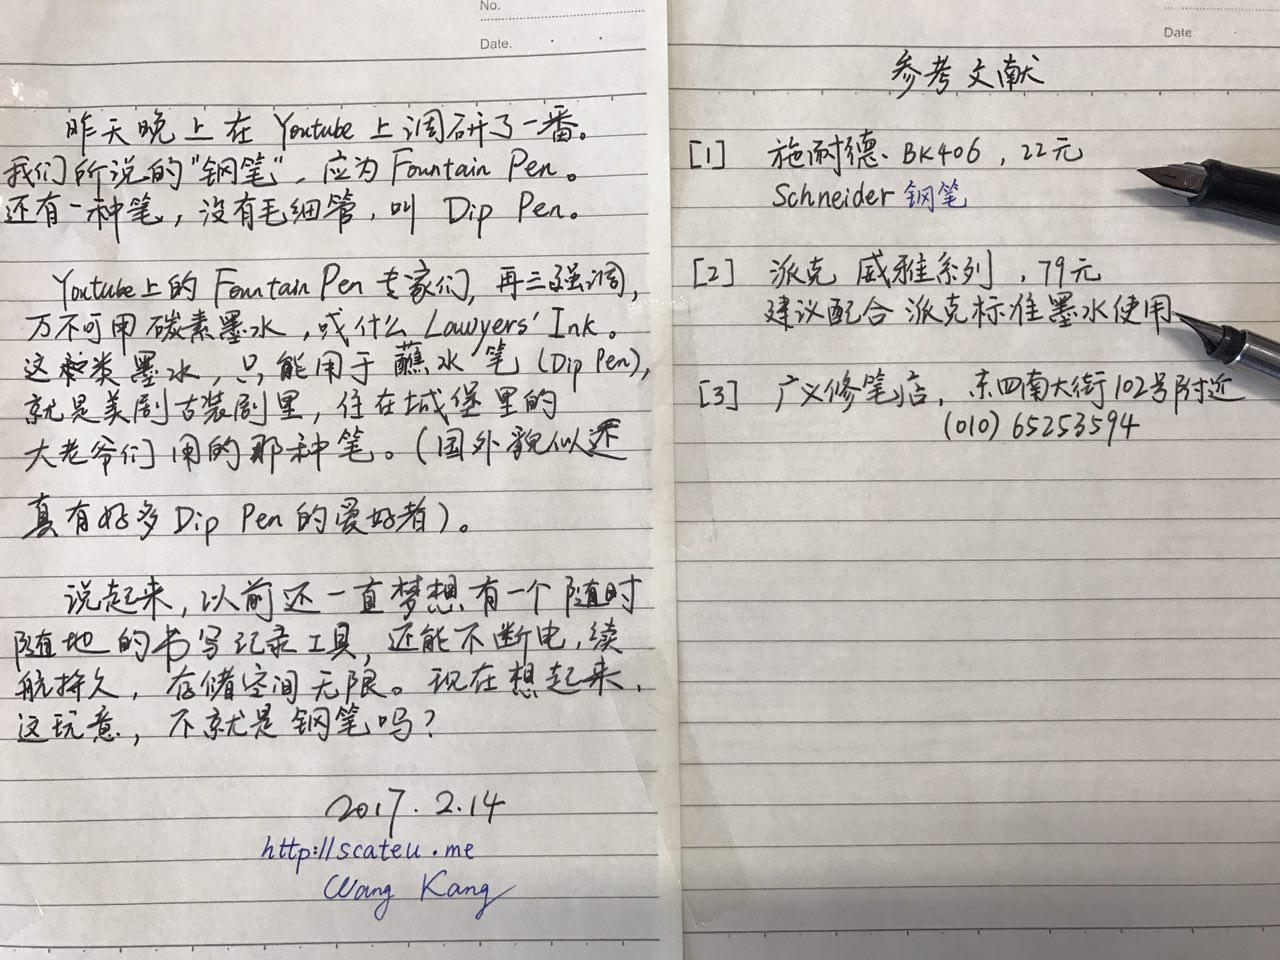 No.
Date.
昨天晚上在 Youtube 上调研了一番。
我们所说的"钢笔"，应为 Fountain Pen。
还有一种笔，没有毛细管，叫 Dip Pen。
Youtube上的 Fountain Pen 专家们，再三强调，
万不可用碳素墨水，或什么 Lawyers' Ink。
这类墨水，只能用于蘸水笔 (Dip Pen)，
就是美剧古装剧里，住在城堡里的
大老爷们用的那种笔。（国外貌似还
真有好多 Dip Pen 的爱好者）。
说起来，以前还一直梦想有一个随时
随地的书写记录工具，还能不断电，续
航持久，存储空间无限。现在想起来，
这玩意，不就是钢笔吗？
2017.2.14
http://scateu.me
Wang Kang
Date
参考文献
[1] 施耐德、BK406，22元
Schneider 钢笔
[2] 派克 威雅系列，79元
建议配合派克标准墨水使用
[3] 广义修笔店，东四南大街102号附近
(010) 65253594